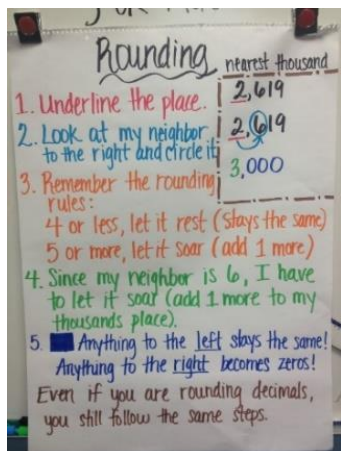 Rounding nearest thousand
1. Underline the place.
2,619
2. Look at my neighbor
to the right and circle it
2,619
3,000
3. Remember the rounding
rules:
4 or less, let it rest (stays the same)
5 or more, let it soar (add 1 more)
4. Since my neighbor is 6, I have
to let it soar (add 1 more to my
thousands place).
5. Anything to the left stays the same!
Anything to the right becomes zeros!
Even if you are rounding decimals,
you still follow the same steps.